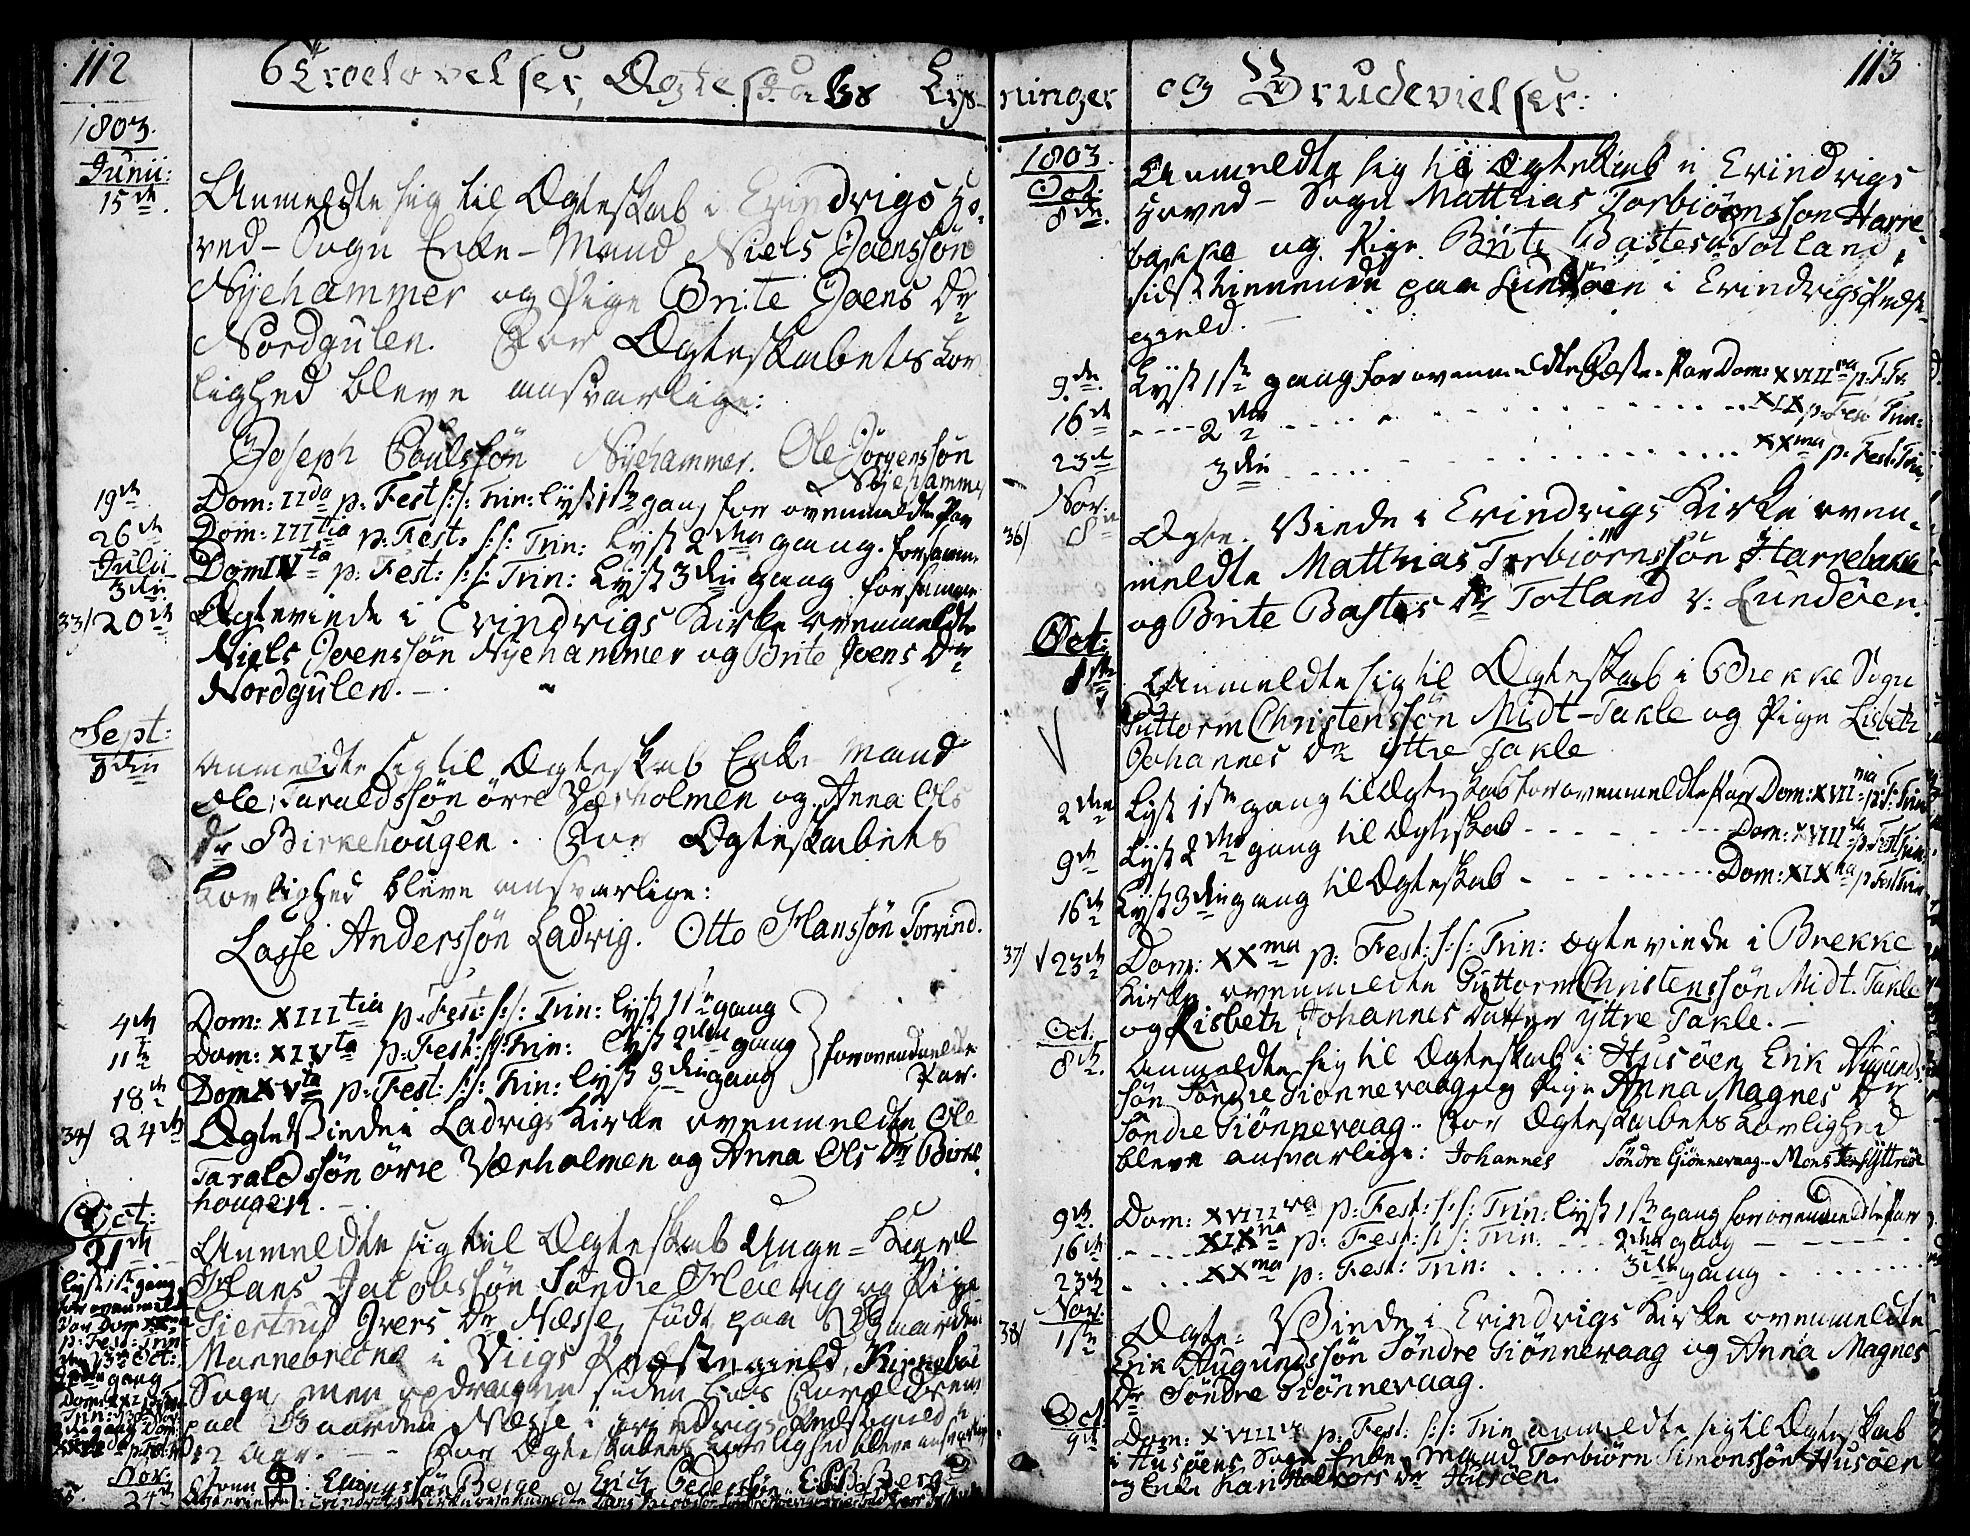 112
Troelovelser, Ægteskabs Lys-
1803.
Junii:
15de.
Anmeldte sig til Ægteskab i Evindrigs Ho-
ved-Sogn Enke-Mand Niels Joenssøn
Nyehammer og Pige Brite Joens Dr
Nordgulen. For Ægteskabets Lov
lighed bleve ansvarlige:
Joseph Poulssøn Nyehammer. Ole Jørgenssøn
Nyehammer
19de Dom: IIda p: Fest: s:s: Trin: lyst 1ste gang for ovenmeldte Par
26de Dom: IIItia p: Fest: s:s: Trin: lyst 2den gang for samme
Julii
3die Dom IVta p: Fest: s:s: Trin: Lyst 3die gang for samme
33) 20de Ægteviede i Evindrigs Kirke ovenmeldte
Niels Joenssøn Nyehammer og Brite Joens Dr
Nordgulen.
Sept:
3die Anmeldte sig til Ægteskab Enke Mand
Ole Taraldssøn örre Værholmen og Anna Ols
Dr Birkehougen. For Ægteskabets
Lovlighed bleve ansvarlige:
Lasse Anderssøn Ladvig. Otto Hanssøn Torvind.
4de Dom: XIIItia p: Fest: s:s: Trin: lyst 1ste gang
11te Dom: XIVta p: Fest: s:s: Trin: lyst 2den gang for ovenmeldte
18de Dom XVta p: Fest: s:s: Trin: lyst 3die gang Par.
34) 24de Ægte Viede i Ladvigs Kirke ovenmeldte Ole
Taraldssøn örre Værholmen og Anna Ols Dr Birke
hougen.
Oct:
21de Anmeldte sig til Ægteskab Unge-Karl
Hans Jacobssøn Söndre og Pige
Giertrud Ivers Dr Næsse, født paa Gaarden
Mannebretne i Viigs Præstegield, Kirkeböe
Sogn, men opdragen siden hos Forældrene
paa Gaarden Næsse i Evindrigs Præstegield
12 Aar. For Ægteskabets Lovlighed bleve ansvarlige
lyst 1ste gang
for ovenmeldte
p: Fest: Trin:
gang
Nov:
Ellingssøn Berge Erich Pederssøn Berge
113
ninger og Brudevielser:
1803.
Oct:
8de. Anmeldte sig til Ægteskab i Evindrigs
Hoved-Sogn Matthias Torbiörnssøn Harre-
bakke og Pige Brite Bastes Dr Totland,
sidst tienende paa Lundöen i Evindrigs Præste-
gield.
9de. Lyst 1ste gang for ovenmeldte Par Dom: XVIIIva p: F: Tr:
16de - - - - 2den - - - - XIX p: Fest: Trin:
23de 3die - - - - XXma p: Fest: Trin:
Nov.
36) 8de Ægte-Viede i Evindrigs Kirke oven-
meldte Matthias Torbiörnssøn Harrebakke
og Brite Bastes Dr Totland v: Lundöen.
Oct:
1ste Anmeldte sig til Ægteskab i Brekke Sogn
Guttorm Christenssøn Midt-Takle og Pige Lisbeth
Johannes Dr yttre Takle
2den Lyst 1ste gang til Ægteskab for ovenmeldte Par Dom: XVIIma p: F: Trin:
9de Lyst 2den gang til Ægteskab - - - - Dom: XVIIIva p: Fest: Trin:
16de Lyst 3die gang til Ægteskab - - - - Dom: XIXna p: Fest: Trin:
37) 23de Dom: XXma p: Fest: s:s: Trin: Ægteviede i Brekke
Kirke ovenmeldte Guttorm Christenssøn Midt-Takle
og Lisbeth Johannes Datter yttre Takle.
Oct:
8de. Anmeldte sig til Ægteskab i Husöen Erik Augunds
søn Söndre Giönnevaag og Pige Anna Magnes Dr
Söndre Giönnevaag. For Ægteskabets Lovlighed
bleve ansvarlige: Johannes Söndre Giönnevaag. Mons
9de. Dom: XVIIIva p: Fest: s:s: Trin: lyst 1ste gang for ovenmeldte Par
16de - - - XIXna p: Fest: s:s: Trin: - - 2den gang - - -
23de - - - XXma p: Fest: Trin: - - - 3die gang - - -
Nov:
38) 1ste Ægte-Viede i Evindrigs Kirke ovenmeldte
Erik Augundssøn Söndre Giönnevaag og Anna Magnes
Dr Söndre Giönnevaag.
Oct
9de Dom: XVIIIva p: Fest: s:s: Trin anmeldte sig til Ægteskab
i Husöens Sogn Enke-Mand Torbiörn Simonssøn Husöen
og Enke Kari Halvors Dr Husöen.